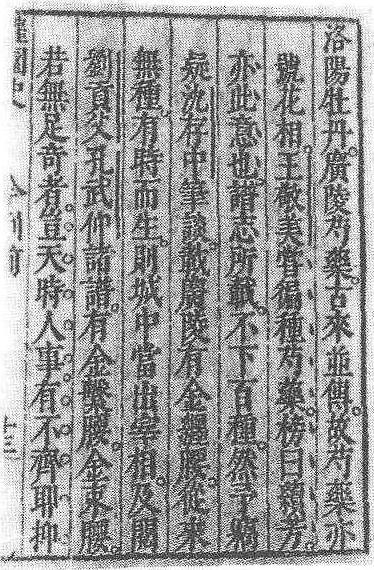 洛陽牡丹。廣陵芍藥。古來並傳。故芍藥亦
號花相。王敬美嘗徧種芍藥。榜曰續芳。
亦此意也。諸志所載。不下百種。然予竊
疑沈存中筆談。載廣陵有金纏腰。從來
無種。有時而生。則城中當出宰相。及閱
劉貢父孔武仲諸譜。有金繫腰。金束腰。
若無足奇者。豈天時人事。有不齊耶。抑